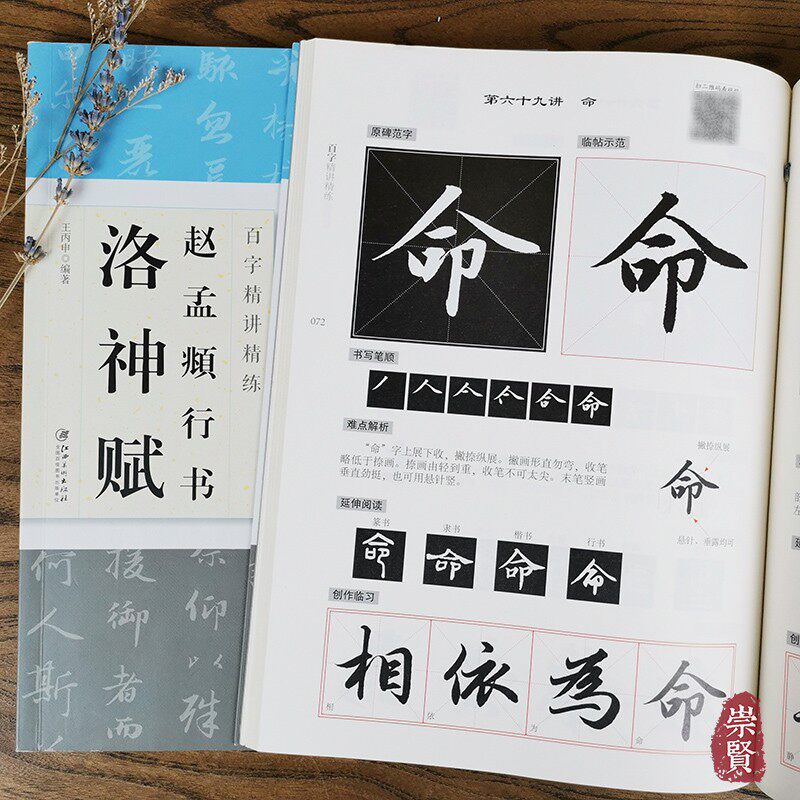 百字精讲精练
赵孟頫行书
洛神赋
王丙申◎编著
江西美术出版社
第六十九讲 命
百字精讲精练
072
原碑范字
临帖示范
命
命
书写笔顺
难点解析
“命”字上展下收，撇捺纵展。撇画形直勿弯，收笔
略低于捺画。捺画由轻到重，收笔不可太尖。末笔竖画
垂直劲挺，也可用悬针竖。
撇捺纵展
命
悬针、垂露均可
延伸阅读
篆书 隶书 楷书 行书
命 命 命 命
创作临习
相依為命
相 依 为 命
何人斯
接御者而
仰以殊
崇賢